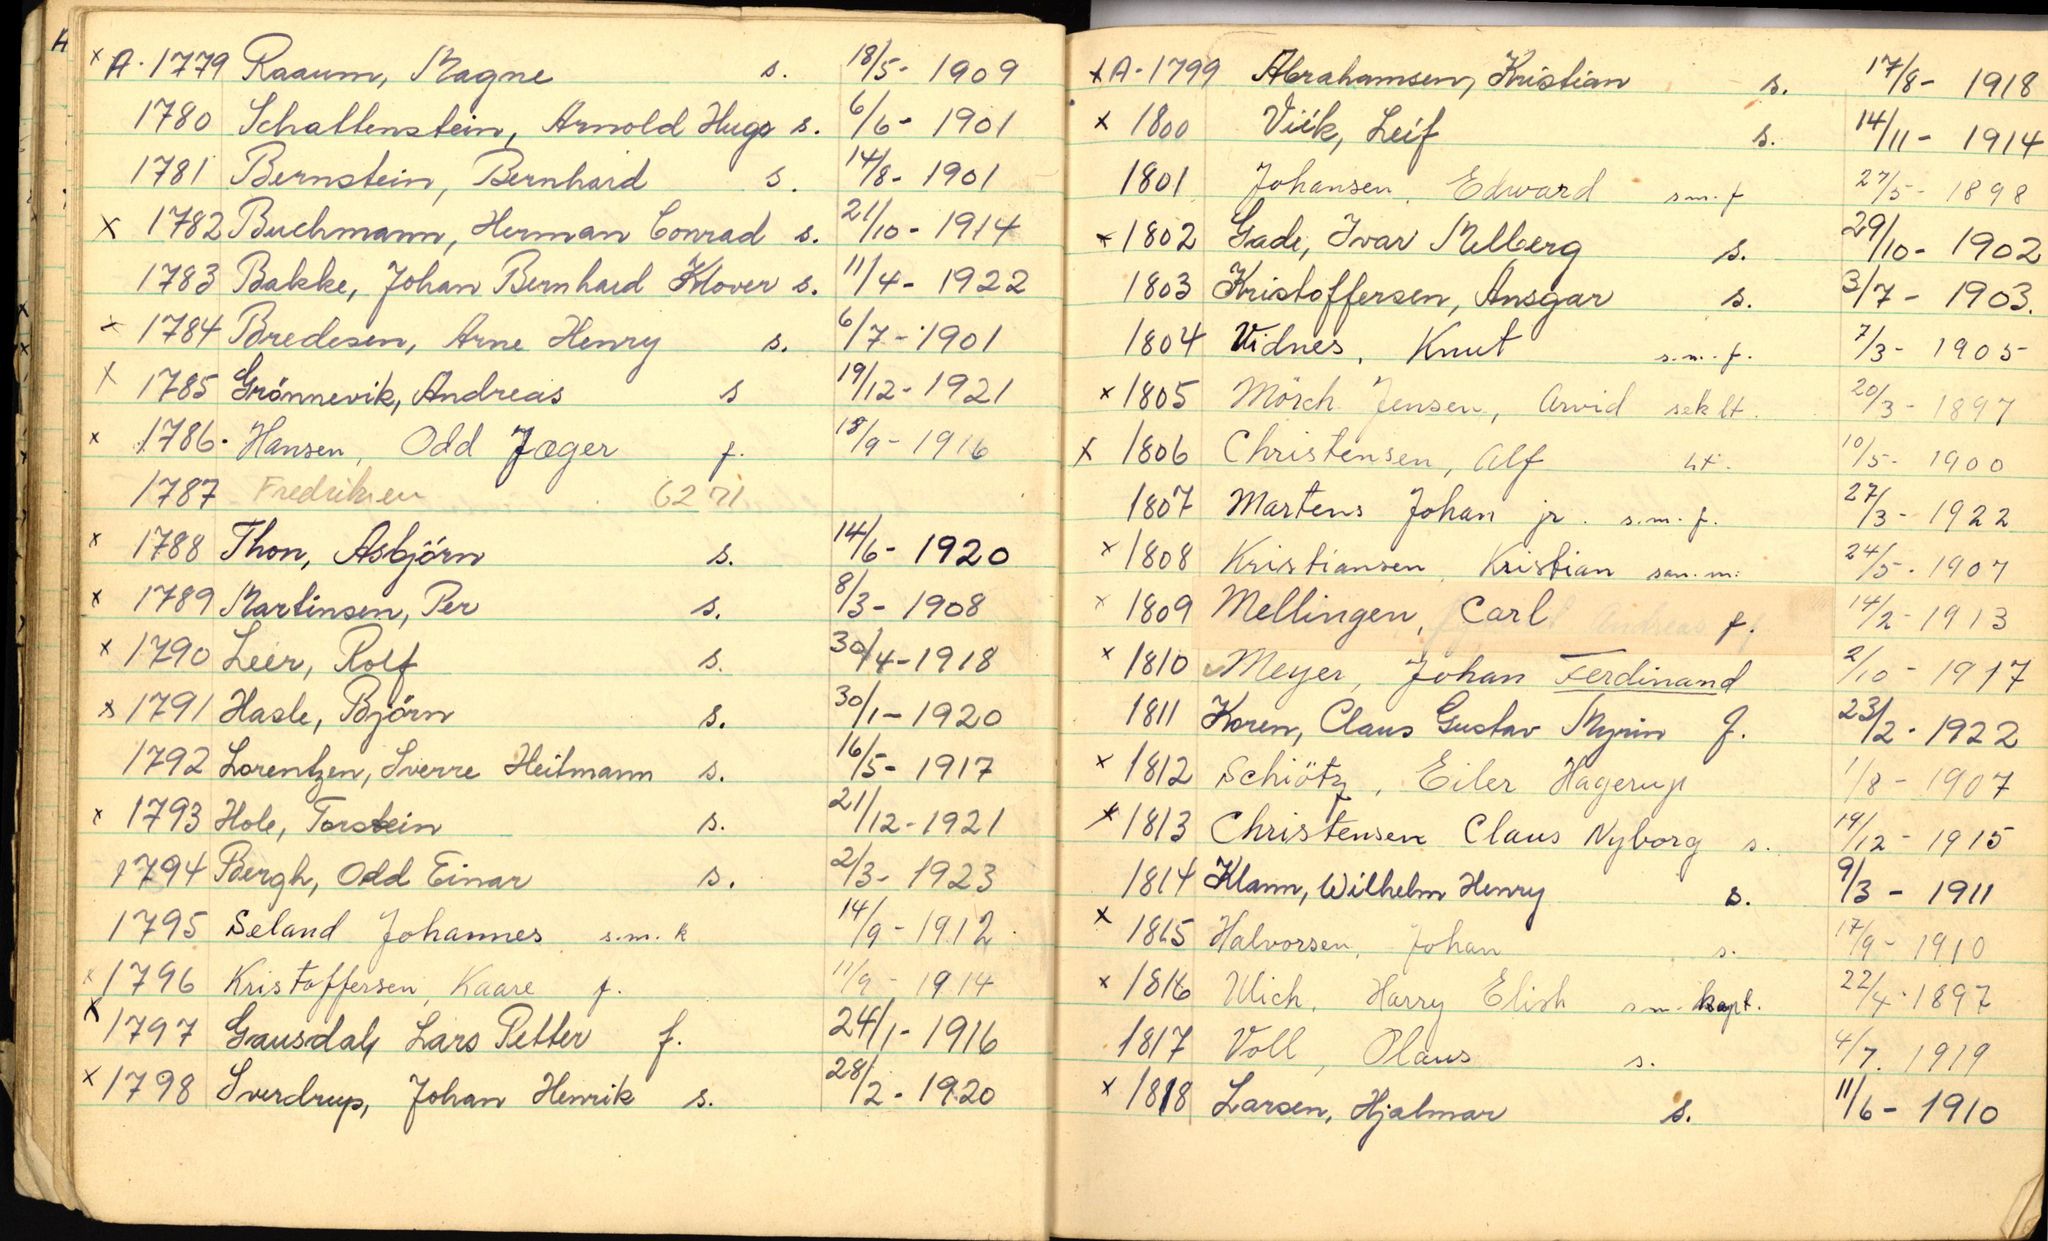 x A. 1779 Raaum, Magne s. 18/5 - 1909
1780 Schattenstein, Arnold Hugo s. 6/6 - 1901
1781 Bernstein, Bernhard s. 14/8 - 1901
x 1782 Buchmann, Herman Conrad s. 21/10 - 1914
1783 Bakke, Johan Bernhard Klover s. 11/4 - 1922
x 1784 Bredesen, Arne Henry s. 6/7 - 1901
x 1785 Grönnevik, Andreas s 19/12 - 1921
x 1786. Hansen, Odd Jæger f. 18/9 - 1916
1787 Fredriksen 6271
x 1788 Thon, Asbjörn s. 14/6 - 1920
x 1789 Martinsen, Per s. 8/3 - 1908
x 1790 Leer, Rolf s. 30/4 - 1918
x 1791 Hasle, Björn s. 30/1 - 1920
1792 Lorentzen, Sverre Heitmann s. 16/5 - 1917
x 1793 Hole, Torstein s. 21/12 - 1921
1794 Bergh, Odd Einar s. 2/3 - 1923
1795 Seland Johannes s.m.k 14/9 - 1912
x 1796 Kristoffersen, Kaare f. 11/9 - 1914
x 1797 Gausdal, Lars Petter f. 24/1 - 1916
x 1798 Sverdrup, Johan Henrik s. 28/2 - 1920
x A - 1799 Abrahamsen, Kristian s. 17/8 - 1918
x 1800 Viik, Leif s. 14/11 - 1914
1801 Johansen, Edward s.m.f 27/5 - 1898
x 1802 Gade, Ivar Melberg s. 29/10 - 1902
1803 Kristoffersen, Ansgar s. 3/7 - 1903.
1804 Vidnes, Knut s.m.f. 7/3 - 1905
x 1805 Mörch Jensen, Arvid sek lt. 20/3 - 1897
x 1806 Christensen, Alf lt. 10/5 - 1900
1807 Martens Johan jr. s.m.f. 27/3 - 1922
x 1808 Kristiansen, Kristian san.m: 24/5 - 1907
x 1809 Mellingen, Carl f. 14/2 - 1913
x 1810 Meyer, Johan Ferdinand 2/10 - 1917
1811 Koren, Claus Gustav Myrin f. 23/2 - 1922
x 1812 Schiötz, Eiler Hagerup 1/8 - 1907
x 1813 Christensen Claus Nyborg s. 19/12 - 1915
1814 Klann, Wilhelm Henry s. 9/3 - 1911
x 1815 Halvorsen, Johan s. 17/9 - 1910
x 1816 Ulich, Harry Elish s.m. kapt. 22/4 - 1897
1817 Voll, Olaus s. 4/7. 1919
x 1818 Larsen, Hjalmar s. 11/6 - 1910